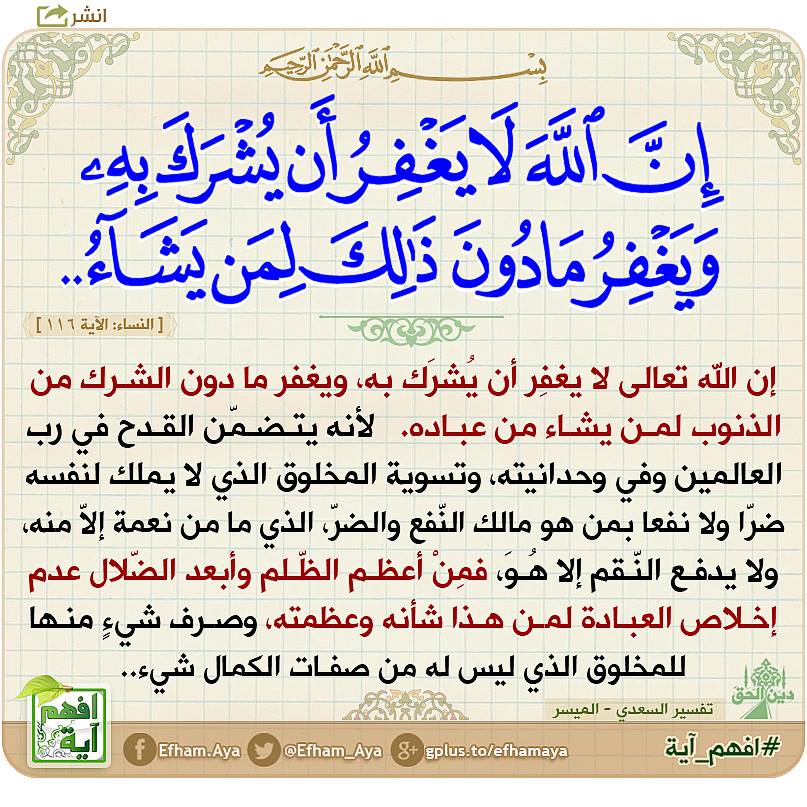 انشر
بِسْمِ اللَّهِ الرَّحْمَٰنِ الرَّحِيمِ
إِنَّ ٱللَّهَ لَا يَغْفِرُ أَن يُشْرَكَ بِهِۦ
وَيَغْفِرُ مَا دُونَ ذَٰلِكَ لِمَن يَشَآءُ..
[ النساء: الآية ١١٦ ]
إن الله تعالى لا يغفِر أن يُشرَك به، ويغفر ما دون الشرك من
الذنوب لمن يشاء من عباده. لأنه يتضمّن القدح في رب
العالمين وفي وحدانيته، وتسوية المخلوق الذي لا يملك لنفسه
ضرّا ولا نفعا بمن هو مالك النّفع والضرّ، الذي ما من نعمة إلاّ منه،
ولا يدفع النّقم إلا هُوَ، فمِنْ أعظم الظّلم وأبعد الضّلال عدم
إخلاص العبادة لمن هذا شأنه وعظمته، وصرف شيءٍ منها
للمخلوق الذي ليس له من صفات الكمال شيء..
دين الحق
تفسير السعدي - الميسر
افهم
آية
Efham.Aya
@Efham_Aya
g+ gplus.to/efhamaya
#افهم_آية